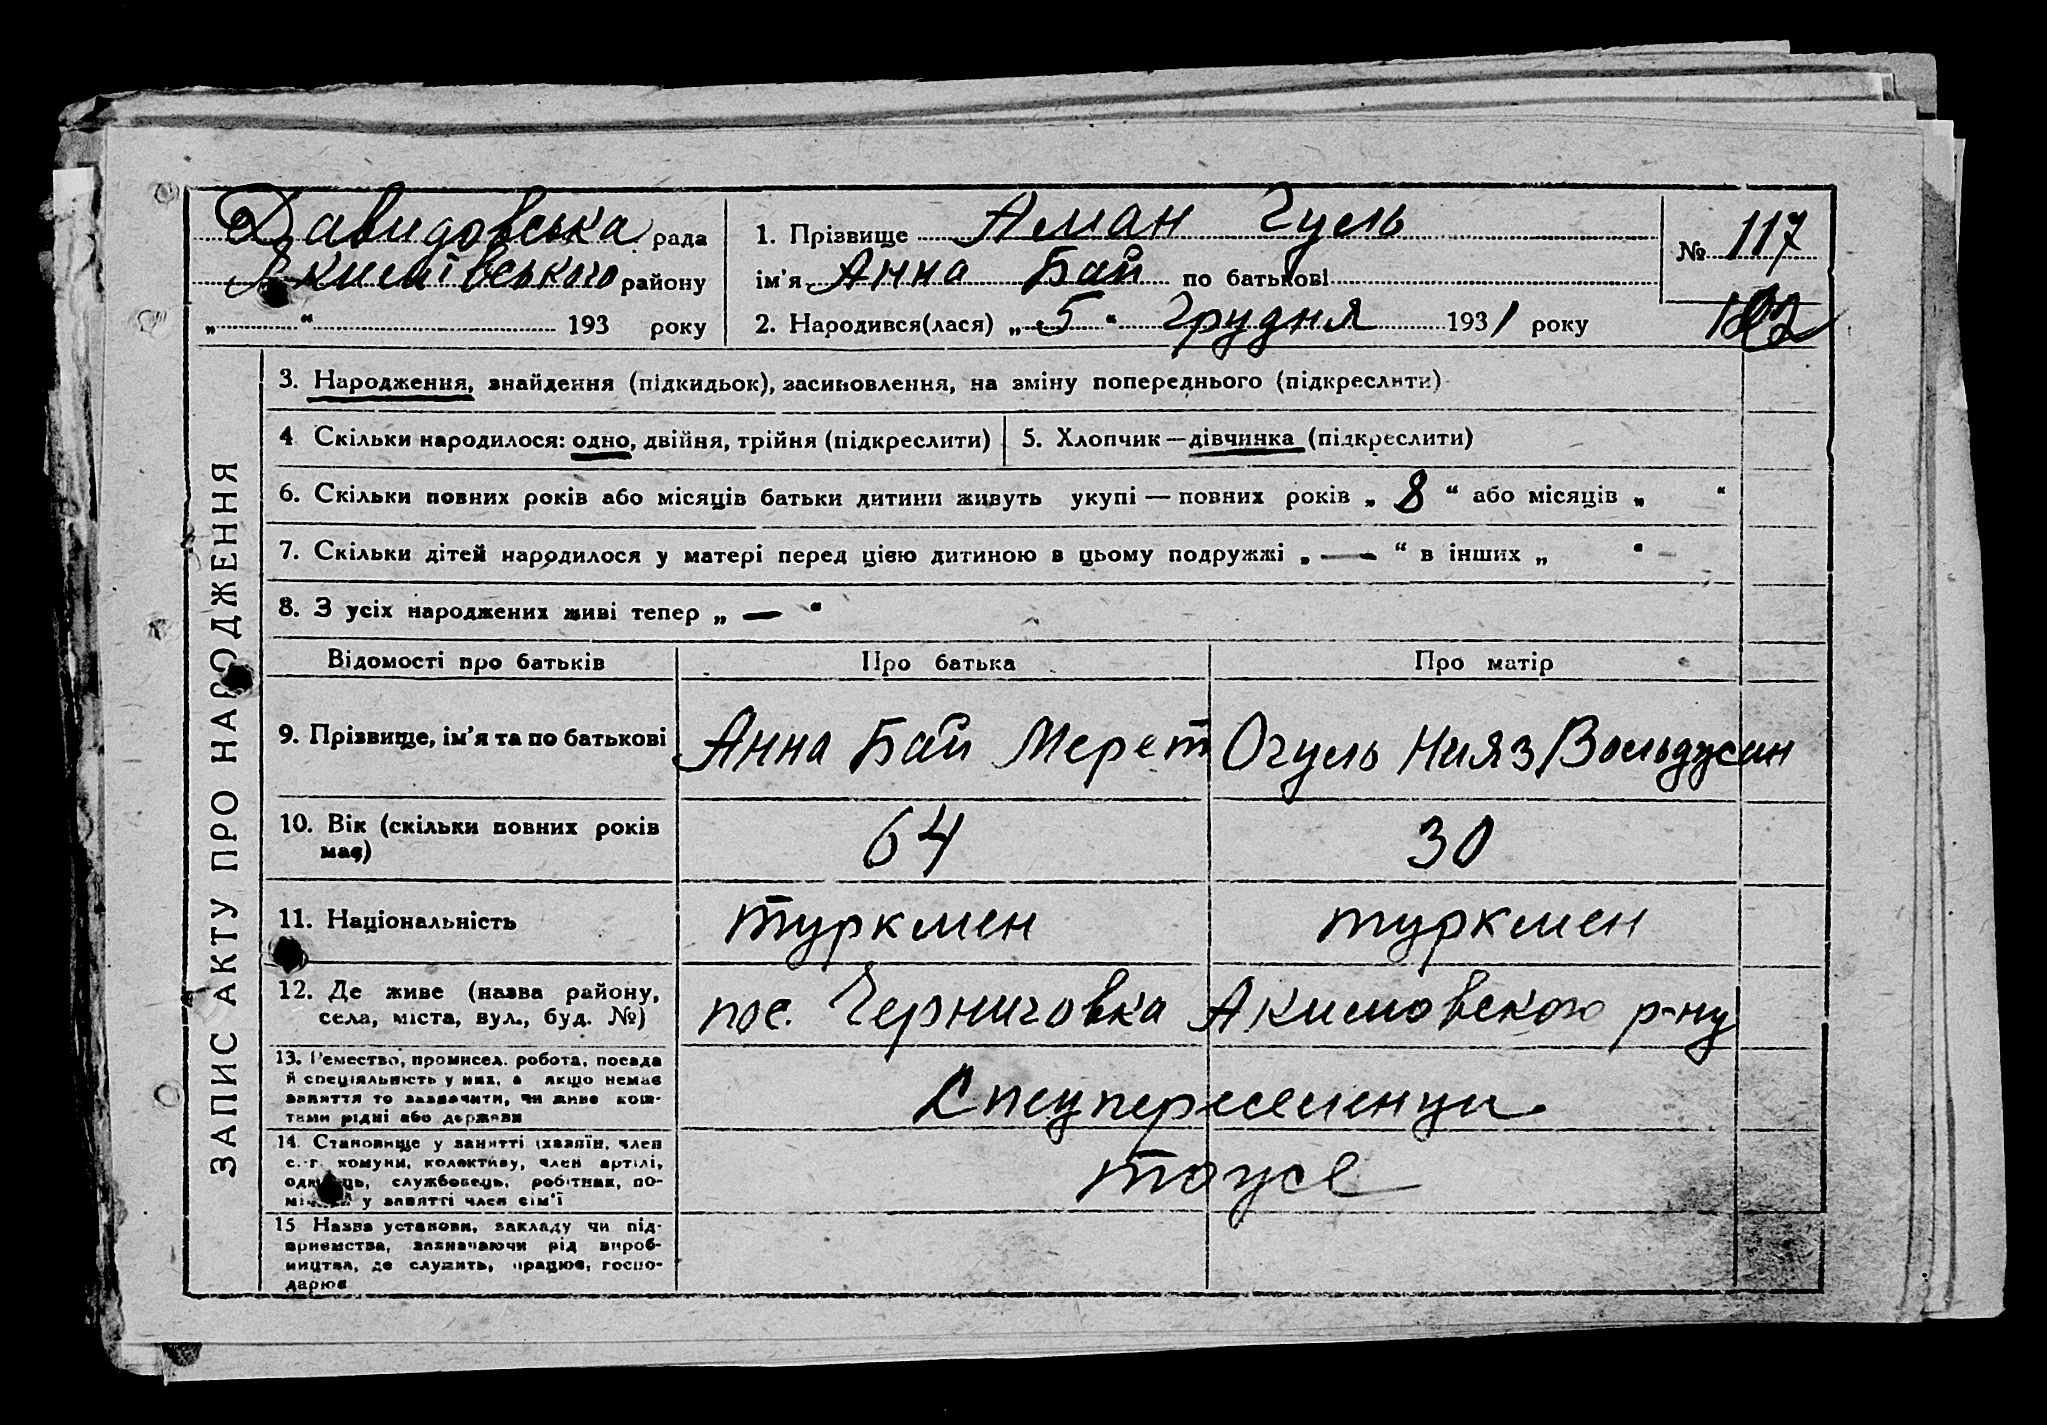 Давидовська рада
Якимівського району
„ “ 193 року
1. Прізвище Аман Гуль
ім'я Анна Бай по батькові
2. Народився(лася) „ 5 “ Грудня 1931 року
№ 117
ЗАПИС АКТУ ПРО НАРОДЖЕННЯ
3. Народження, знайдення (підкидьок), засиновлення, на зміну попереднього (підкреслити)
4 Скільки народилося: одно, двійня, трійня (підкреслити)
5. Хлопчик — дівчинка (підкреслити)
6. Скільки повних років або місяців батьки дитини живуть укупі — повних років „ 8 “ або місяців „ “
7. Скільки дітей народилося у матері перед цією дитиною в цьому подружжі „ — “ в інших „ “
8. З усіх народжених живі тепер „ — “
Відомості про батьків Про батька Про матір
9. Прізвище, ім'я та по батькові Анна Бай Мерет Огуль Нияз
10. Вік (скільки повних років 64 30
має)
11. Національність туркмен туркмен
12. Де живе (назва району, пос. Черниговка Акимовского р-ну
села, міста, вул., буд. №)
13. Ремество, промисел, робота, посада
й спеціяльність у них, а якщо немає Спецпереселенци
заняття то зазначити, чи живе кош-
тами рідні або держави
14. Становище у занятті (хазяїн, член
с.-г. комуни, колективу, член артілі, тоусе
одинець, службовець, робітник, по-
у занятті член сім'ї
15 Назва установи, закладу чи під-
приємства, зазначаючи рід вироб-
ництва, де служить, працює, госпо-
дарює